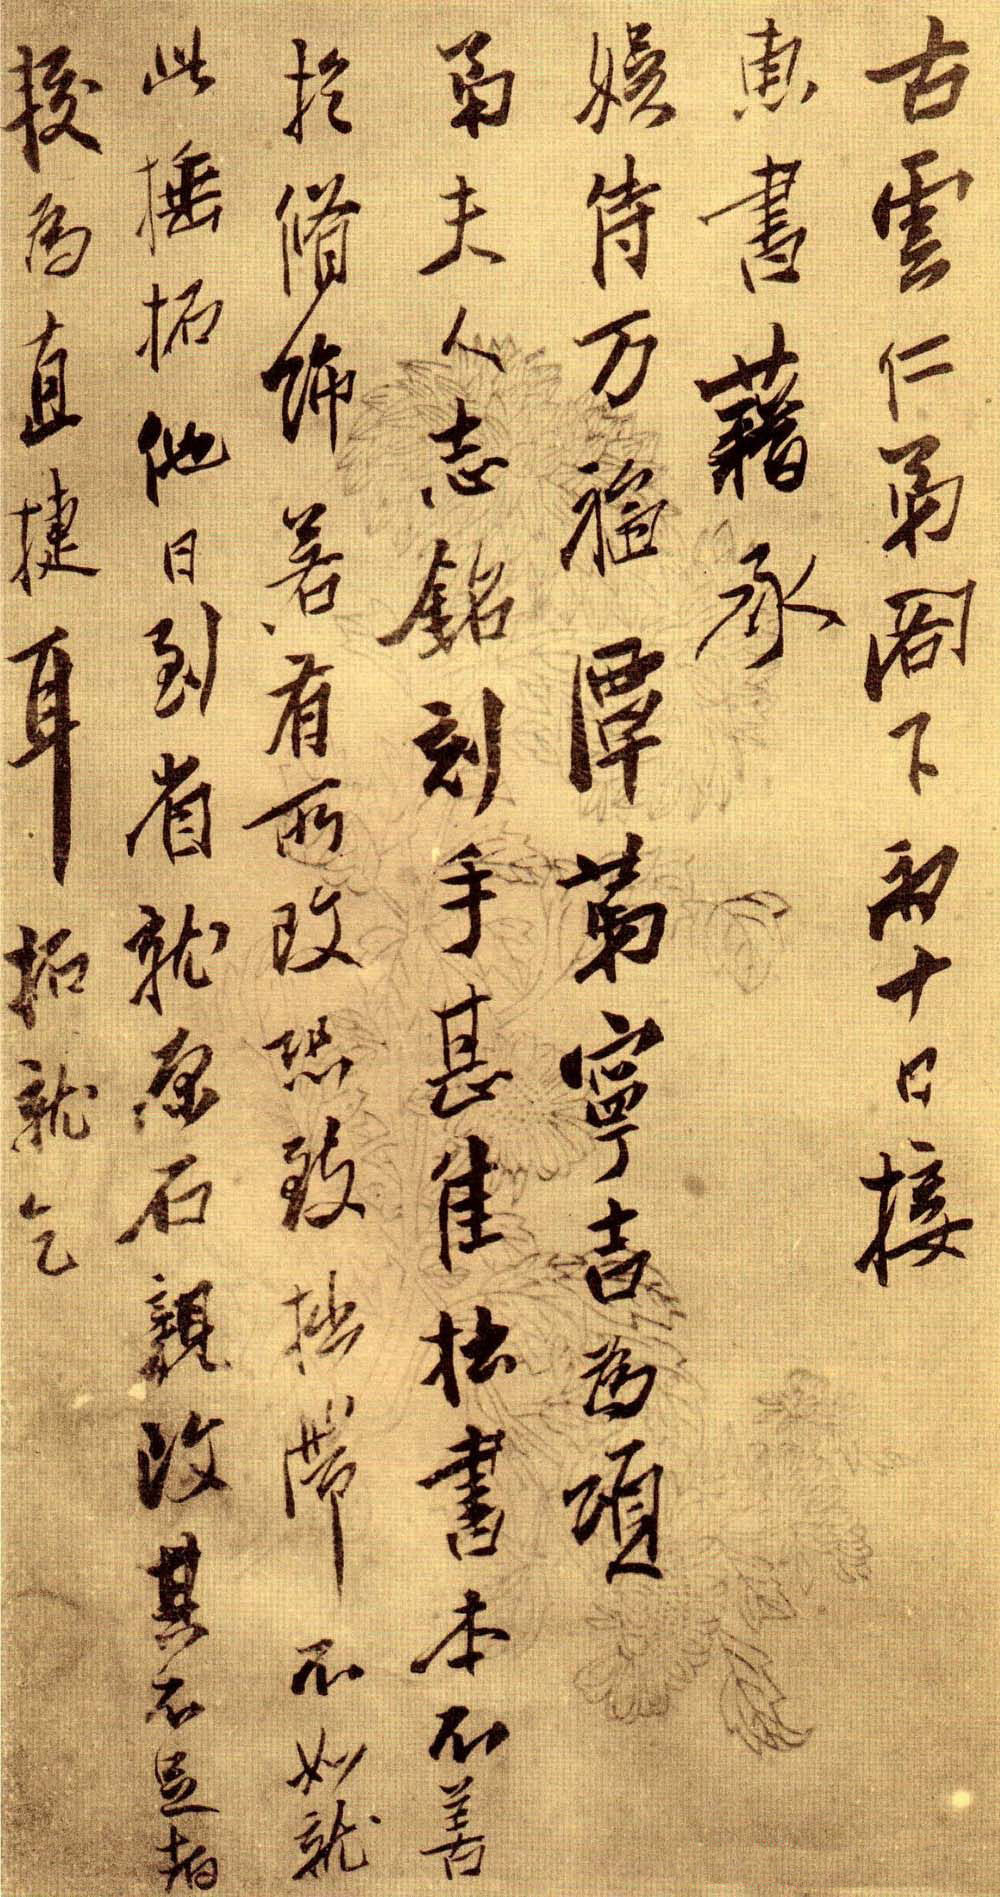 古雲仁弟閣下初十日接
惠書藉承
娛侍万福潭第寧吉為頌
弟夫人志銘刻手甚佳拙書本不善
於脩飾若有所改恐致拙滯不如就
此搥拓他日到省就原石親改其不足者
較為直捷耳拓就乞